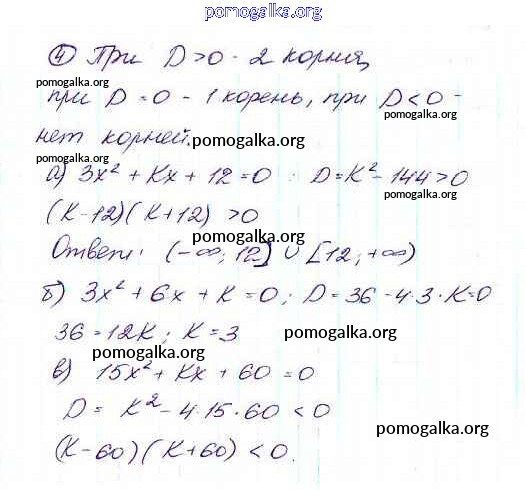 pomogalka.org
④ При D>0 - 2 корня,
pomogalka.org
при D=0 - 1 корень, при D<0 -
pomogalka.org
нет корней. pomogalka.org
pomogalka.org
а) 3x² + Kx + 12 = 0 : D=K²-144>0
pomogalka.org
(K-12)(K+12) >0
pomogalka.org
Ответ: (-∞; 12] ∪ [12; +∞)
б) 3x² + 6x + K = 0; D=36-4·3·K=0
36=12K; K=3 pomogalka.org
pomogalka.org
в) 15x² + Kx + 60 = 0
D = K² - 4·15·60 < 0
pomogalka.org
(K-60)(K+60) < 0.
pomogalka.org